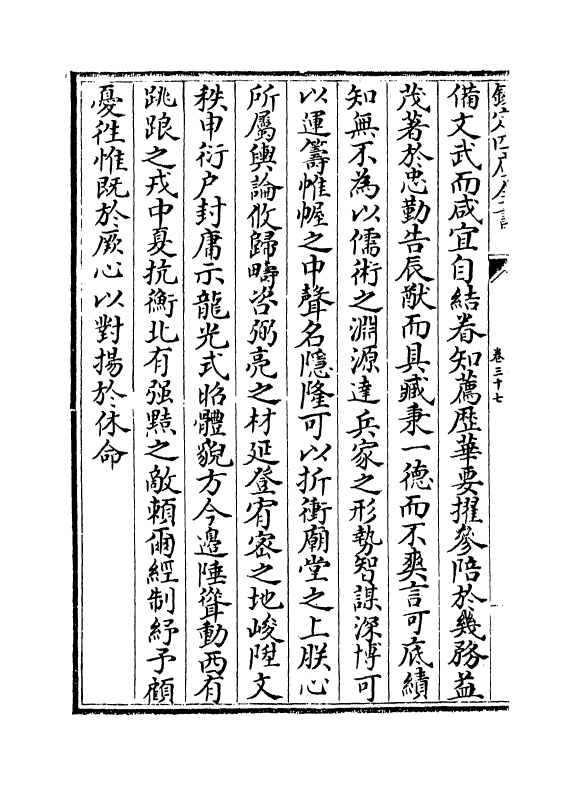 欽定四庫全書
卷三十七
備文武而咸宜自結眷知薦歴華要擢參陪於幾務益
茂著於忠勤告辰猷而具臧秉一德而不爽言可底績
知無不為以儒術之淵源達兵家之形勢智謀深博可
以運籌帷幄之中聲名隱隆可以折衝廟堂之上朕心
所屬輿論攸歸疇咨弼亮之材延登宥密之地峻陞文
秩申衍户封庸示龍光式昭體貌方今邊陲聳動西有
跳踉之戎中夏抗衡北有强黠之敵頼爾經制紓予顧
憂徃惟既於厥心以對揚於休命